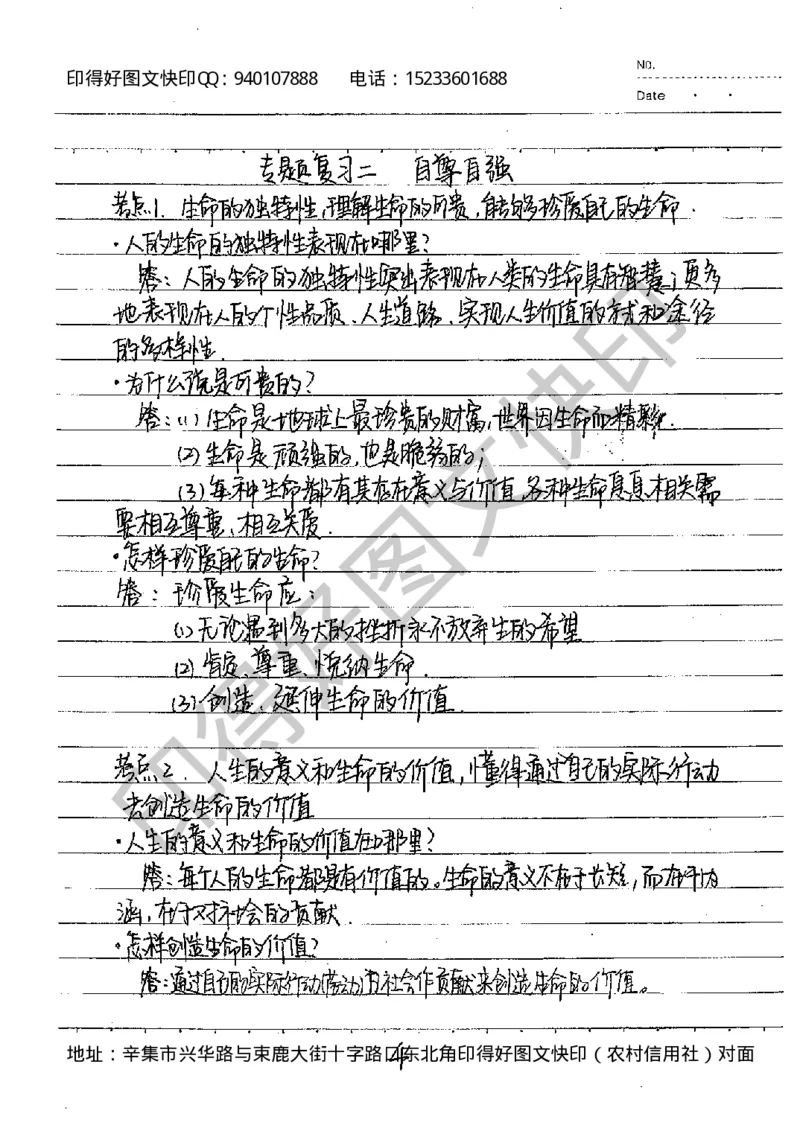 印得好图文快印QQ：940107888 电话：15233601688
No.
Date
专题复习二 自尊自强
考点1. 生命的独特性，理解生命的可贵，能够珍爱自己的生命.
·人的生命的独特性表现在哪里？
答：人的生命的独特性突出表现在人类的生命具有智慧；更多
地表现在人的个性品质、人生道路、实现人生价值的方式和途径
的多样性.
·为什么说是可贵的？
答：(1)生命是地球上最珍贵的财富，世界因生命而精彩.
(2)生命是顽强的，也是脆弱的；
(3)每种生命都有其存在意义与价值，各种生命息息相关需
要相互尊重，相互关爱.
·怎样珍爱自己的生命？
答：珍爱生命应：
(1)无论遇到多大的挫折永不放弃生的希望
(2)肯定、尊重、悦纳生命.
(3)创造、延伸生命的价值.
考点2. 人生的意义和生命的价值，懂得通过自己的实际行动
去创造生命的价值
·人生的意义和生命的价值在哪里？
答：每个人的生命都是有价值的。生命的意义不在于长短，而在于内
涵，在于对社会的贡献.
·怎样创造生命的价值？
答：通过自己的实际行动(劳动)为社会作贡献来创造生命的价值。
地址：辛集市兴华路与束鹿大街十字路口东北角印得好图文快印（农村信用社）对面
印得好图文快印